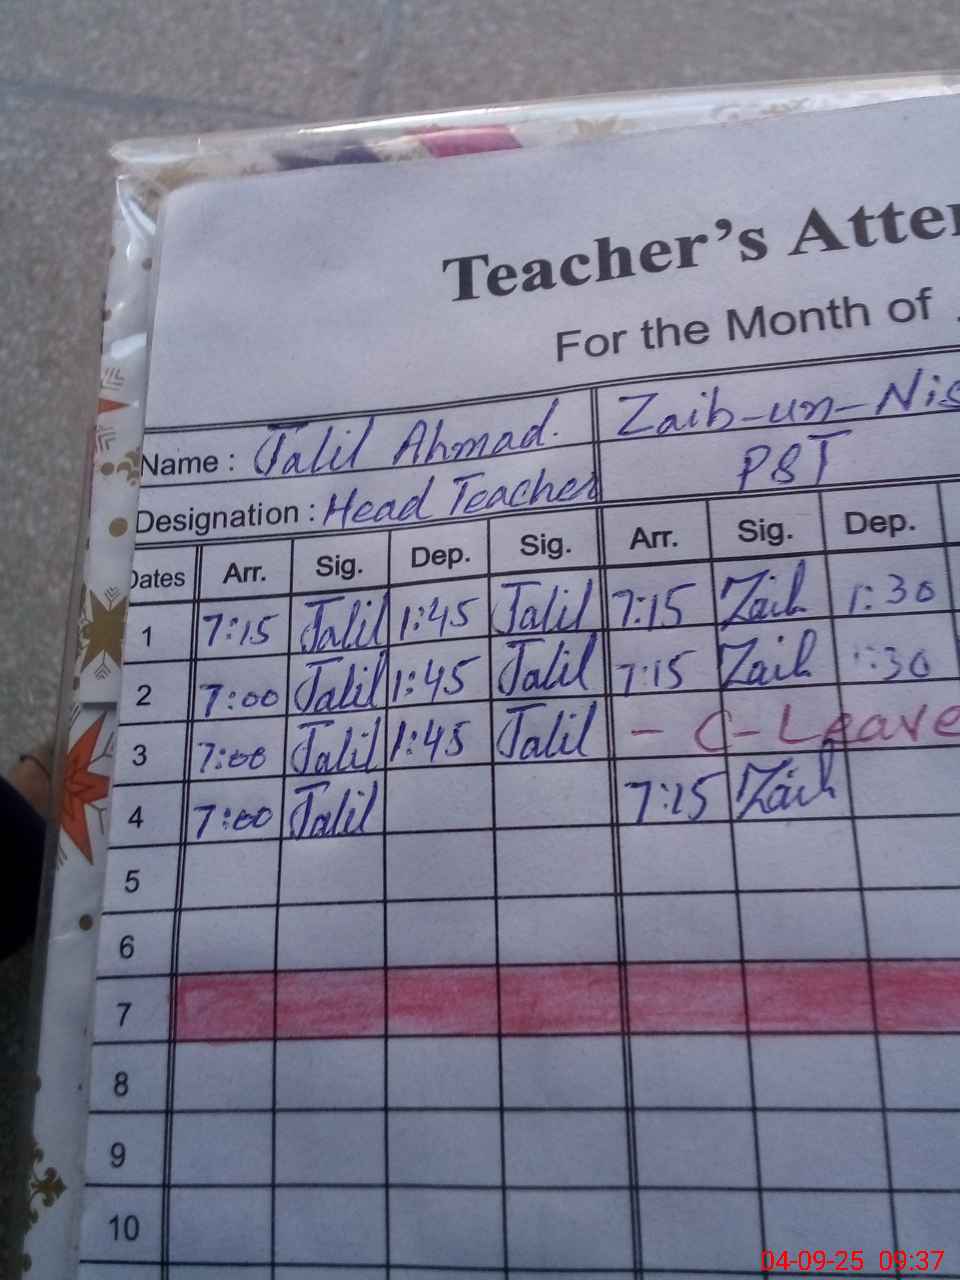 Teacher's Atten
For the Month of
Name : Jalil Ahmad. Zaib-un-Nis
Designation : Head Teacher PST
Dates Arr. Sig. Dep. Sig. Arr. Sig. Dep.
1 7:15 Jalil 1:45 Jalil 7:15 Zaib 1:30
2 7:00 Jalil 1:45 Jalil 7:15 Zaib 1:30
3 7:00 Jalil 1:45 Jalil - C-Leave
4 7:00 Jalil 7:15 Zaib
5
6
7
8
9
10
04-09-25 09:37